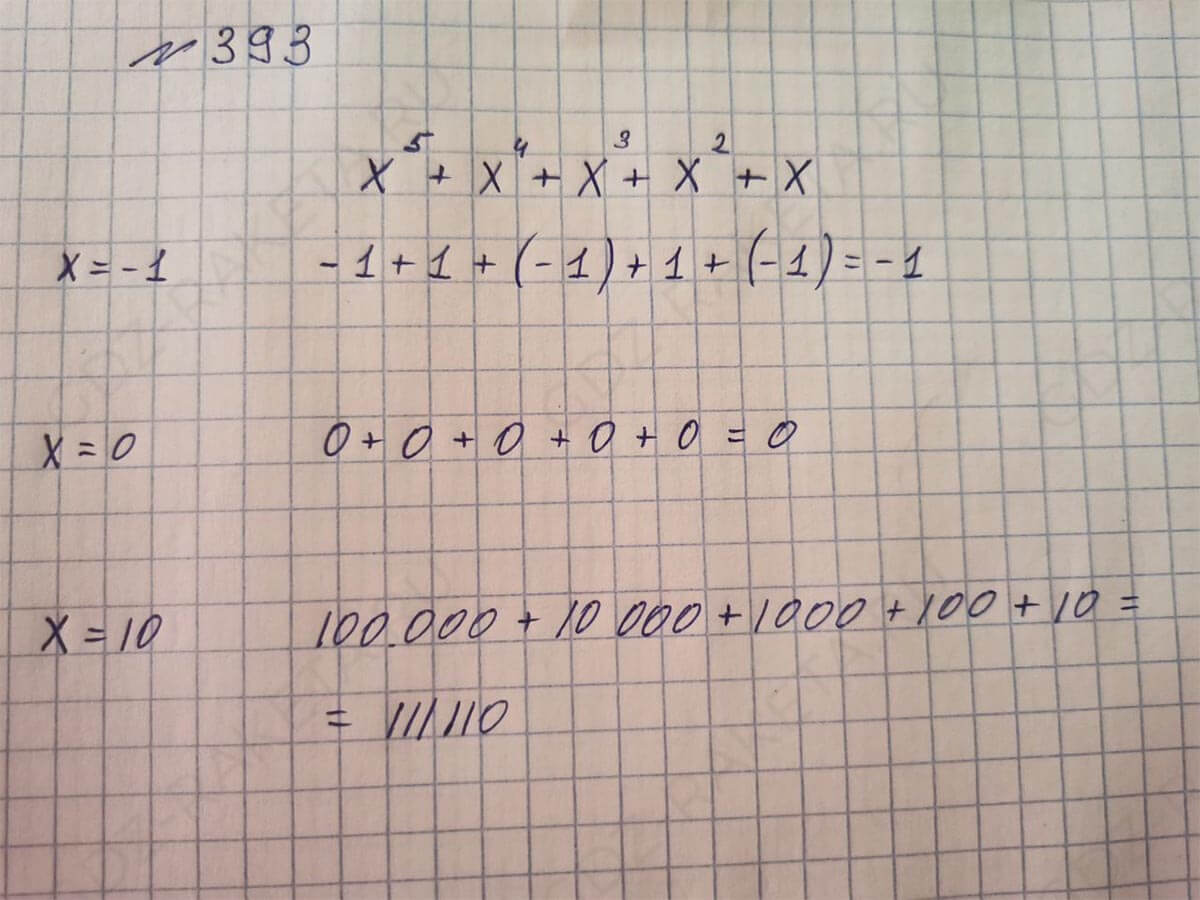 №393
x⁵ + x⁴ + x³ + x² + x
x = -1 -1 + 1 + (-1) + 1 + (-1) = -1
x = 0 0 + 0 + 0 + 0 + 0 = 0
x = 10 100.000 + 10 000 + 1000 + 100 + 10 =
= 111110